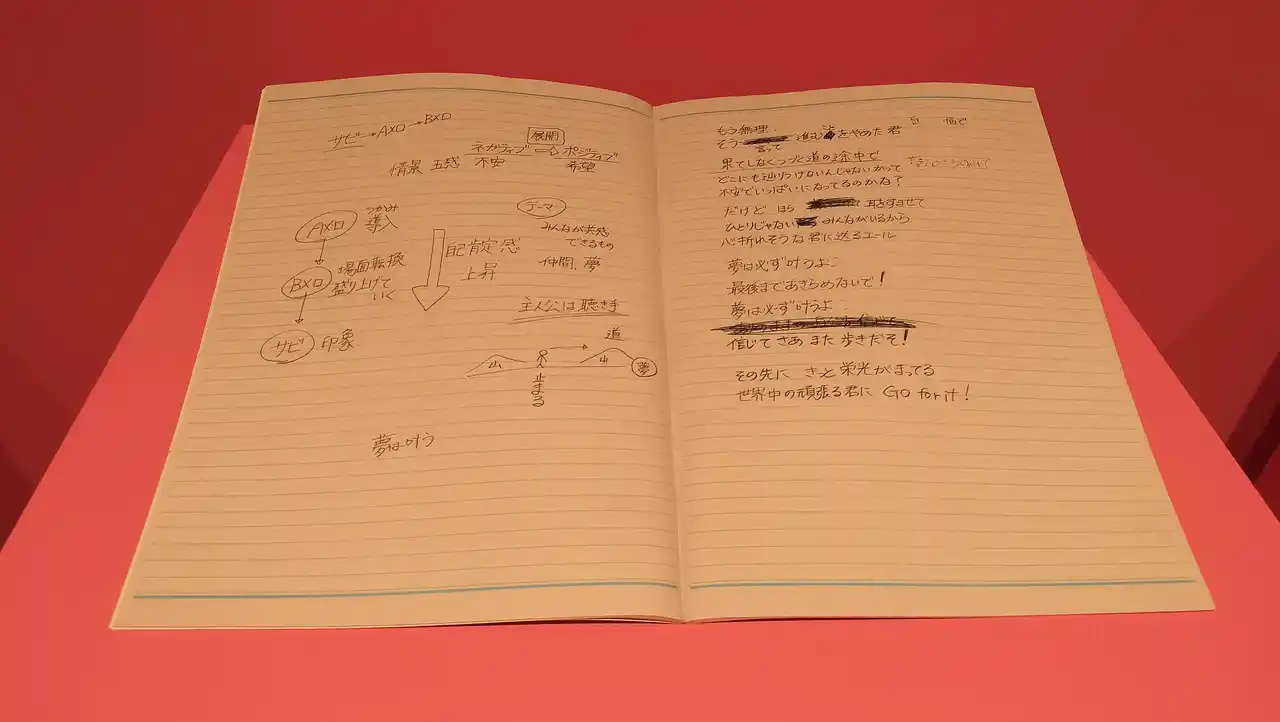 サビ→Aメロ→Bメロ
展開
ネガティブ⇨ポジティブ
情景 五感 不安 希望
Aメロ つかみ 導入
Bメロ 場面転換
盛り上げて
いく
サビ 印象
自己肯定感
上昇
テーマ
みんなが共感
できるもの
仲間、夢
主人公は聴き手
道
山 山 夢
止まる
夢は叶う
もう無理.
そう 進むをやめた君
言って
果てしなくつづく道の途中で
どこにも辿りつけないんじゃないかって
不安でいっぱいになってるのかな?
だけど ほら 耳をすませて
ひとりじゃない みんながいるから
心折れそうな君に送るエール
夢は必ず叶うよ
最後まであきらめないで!
夢は必ず叶うよ
信じて さあ また 歩きだそ!
その先に きっと 栄光がまってる
世界中の頑張る君に Go for it!